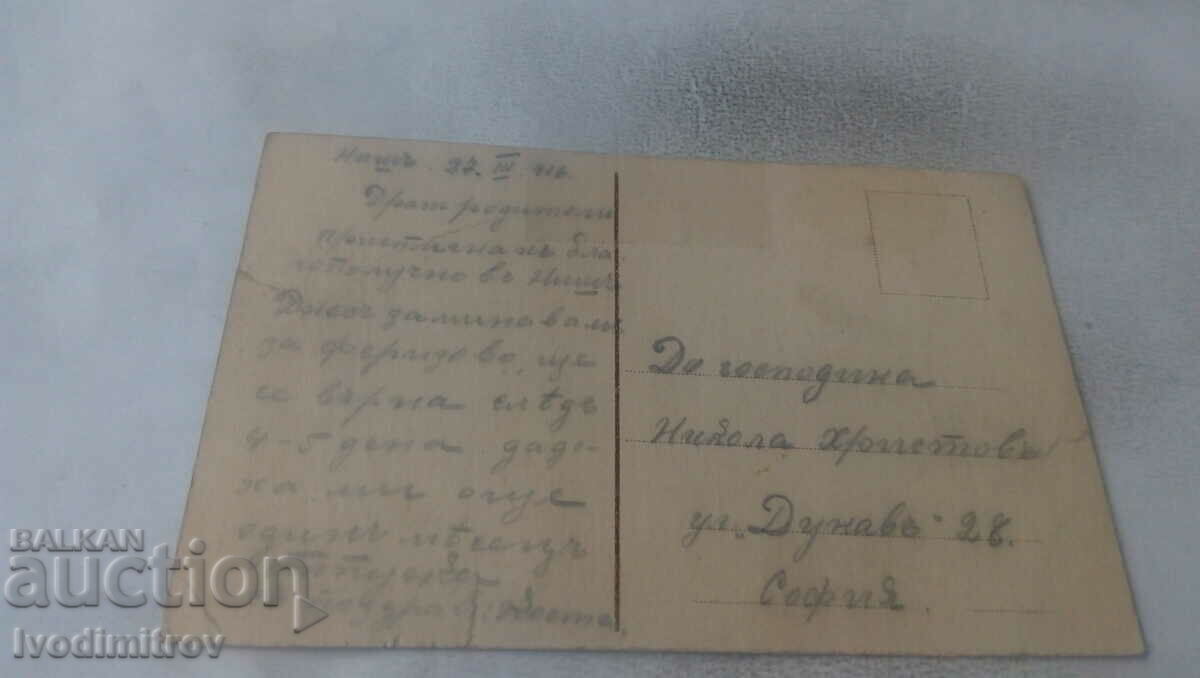 Нишъ. 27. III 916.
Драги родители
пристигнахъ бла
гополучно въ Нишъ
Днесъ заминавамъ
за Феризово, ще
се върна слѣдъ
4-5 дена даде-
ха ми още
единъ мѣсецъ
отпускъ
Поздрав: Коста.
До господина
Никола Христовъ
ул. „Дунавъ" 28.
София
BALKAN
auction
Ivodimitrov